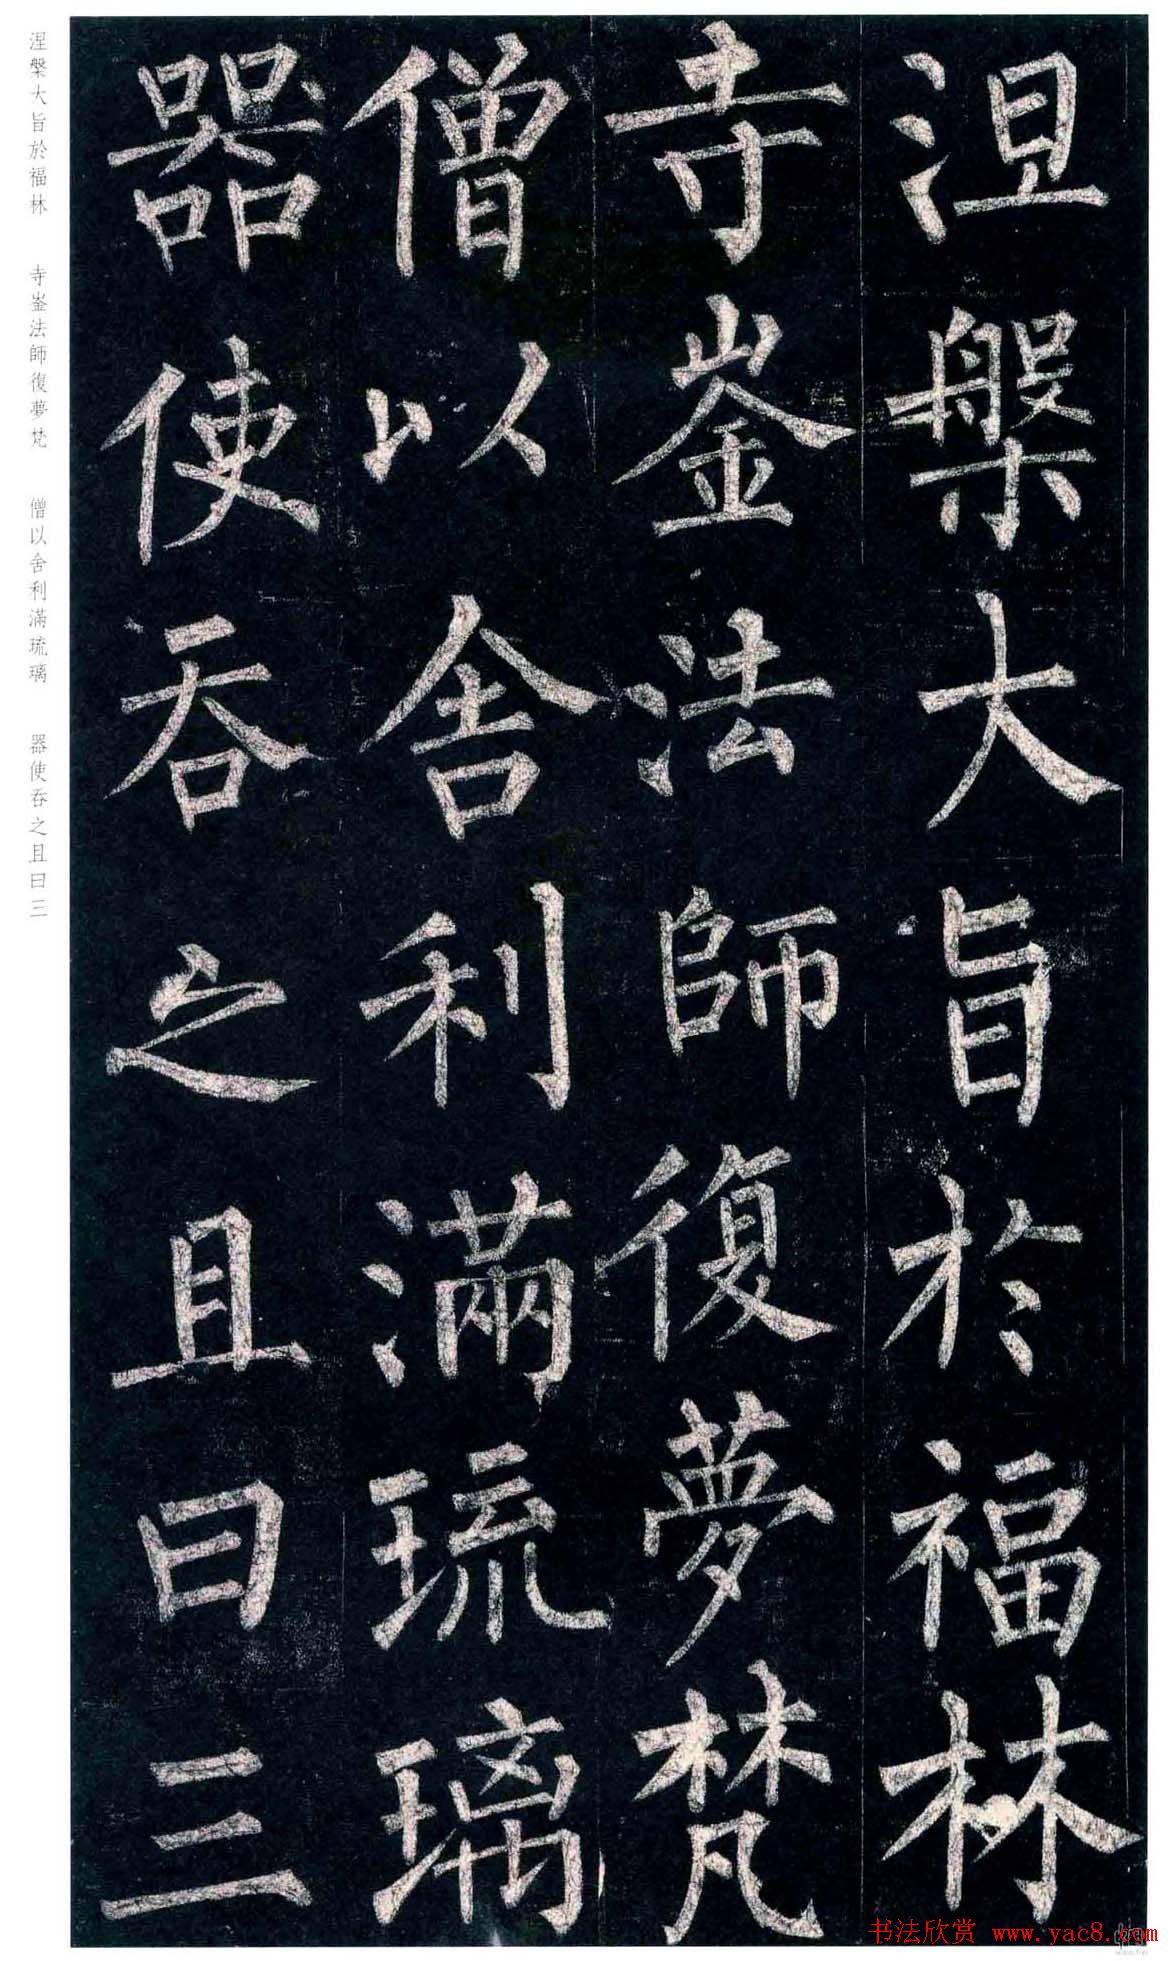 涅槃大旨於福林
寺崟法師復夢梵
僧以舍利滿琉璃
器使吞之且曰三
涅槃大旨於福林 寺崟法師復夢梵 僧以舍利滿琉璃 器使吞之且曰三
书法欣赏 www.yac8.com